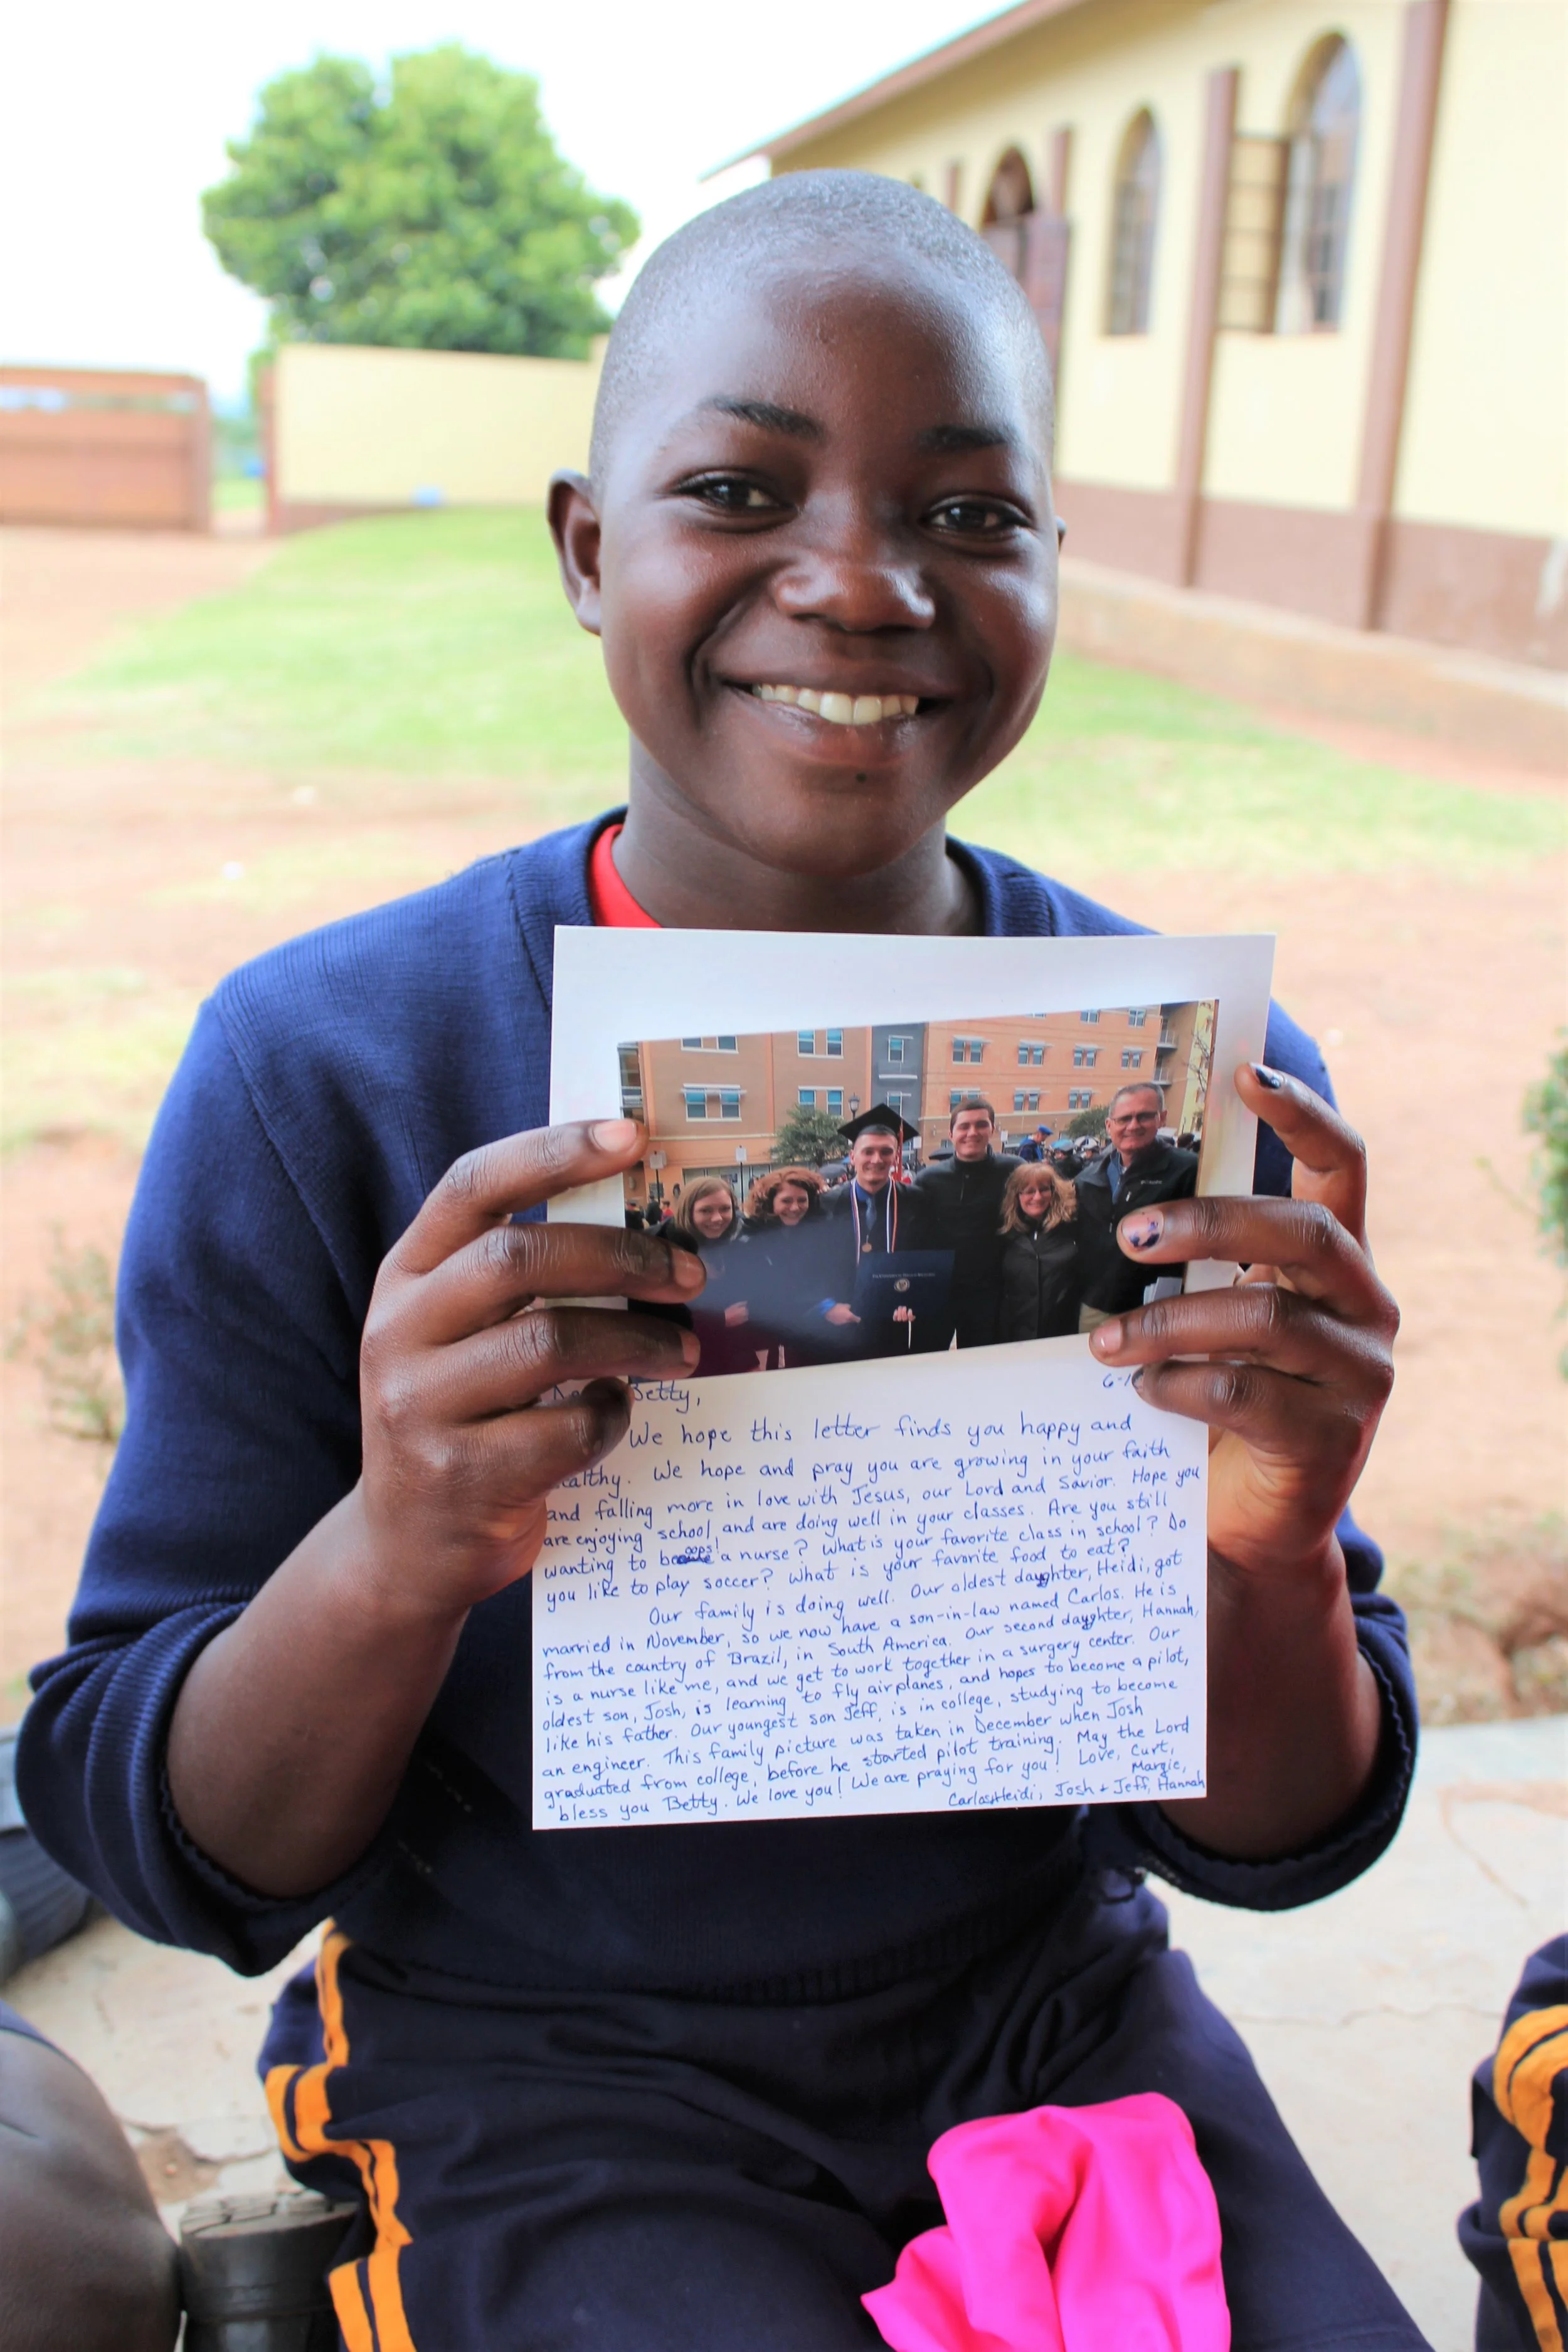 Betty,
6-1
We hope this letter finds you happy and
healthy. We hope and pray you are growing in your faith
and falling more in love with Jesus, our Lord and Savior. Hope you
are enjoying school, and are doing well in your classes. Are you still
oops!
wanting to be a nurse? What is your favorite class in school? Do
you like to play soccer? What is your favorite food to eat?
Our family is doing well. Our oldest daughter, Heidi, got
married in November, so we now have a son-in-law named Carlos. He is
from the country of Brazil, in South America. Our second daughter, Hannah,
is a nurse like me, and we get to work together in a surgery center. Our
oldest son, Josh, is learning to fly airplanes, and hopes to become a pilot,
like his father. Our youngest son Jeff, is in college, studying to become
an engineer. This family picture was taken in December when Josh
graduated from college, before he started pilot training. May the Lord
bless you Betty. We love you! We are praying for you! Love, Curt,
Margie,
Carlos+Heidi, Josh + Jeff, Hannah